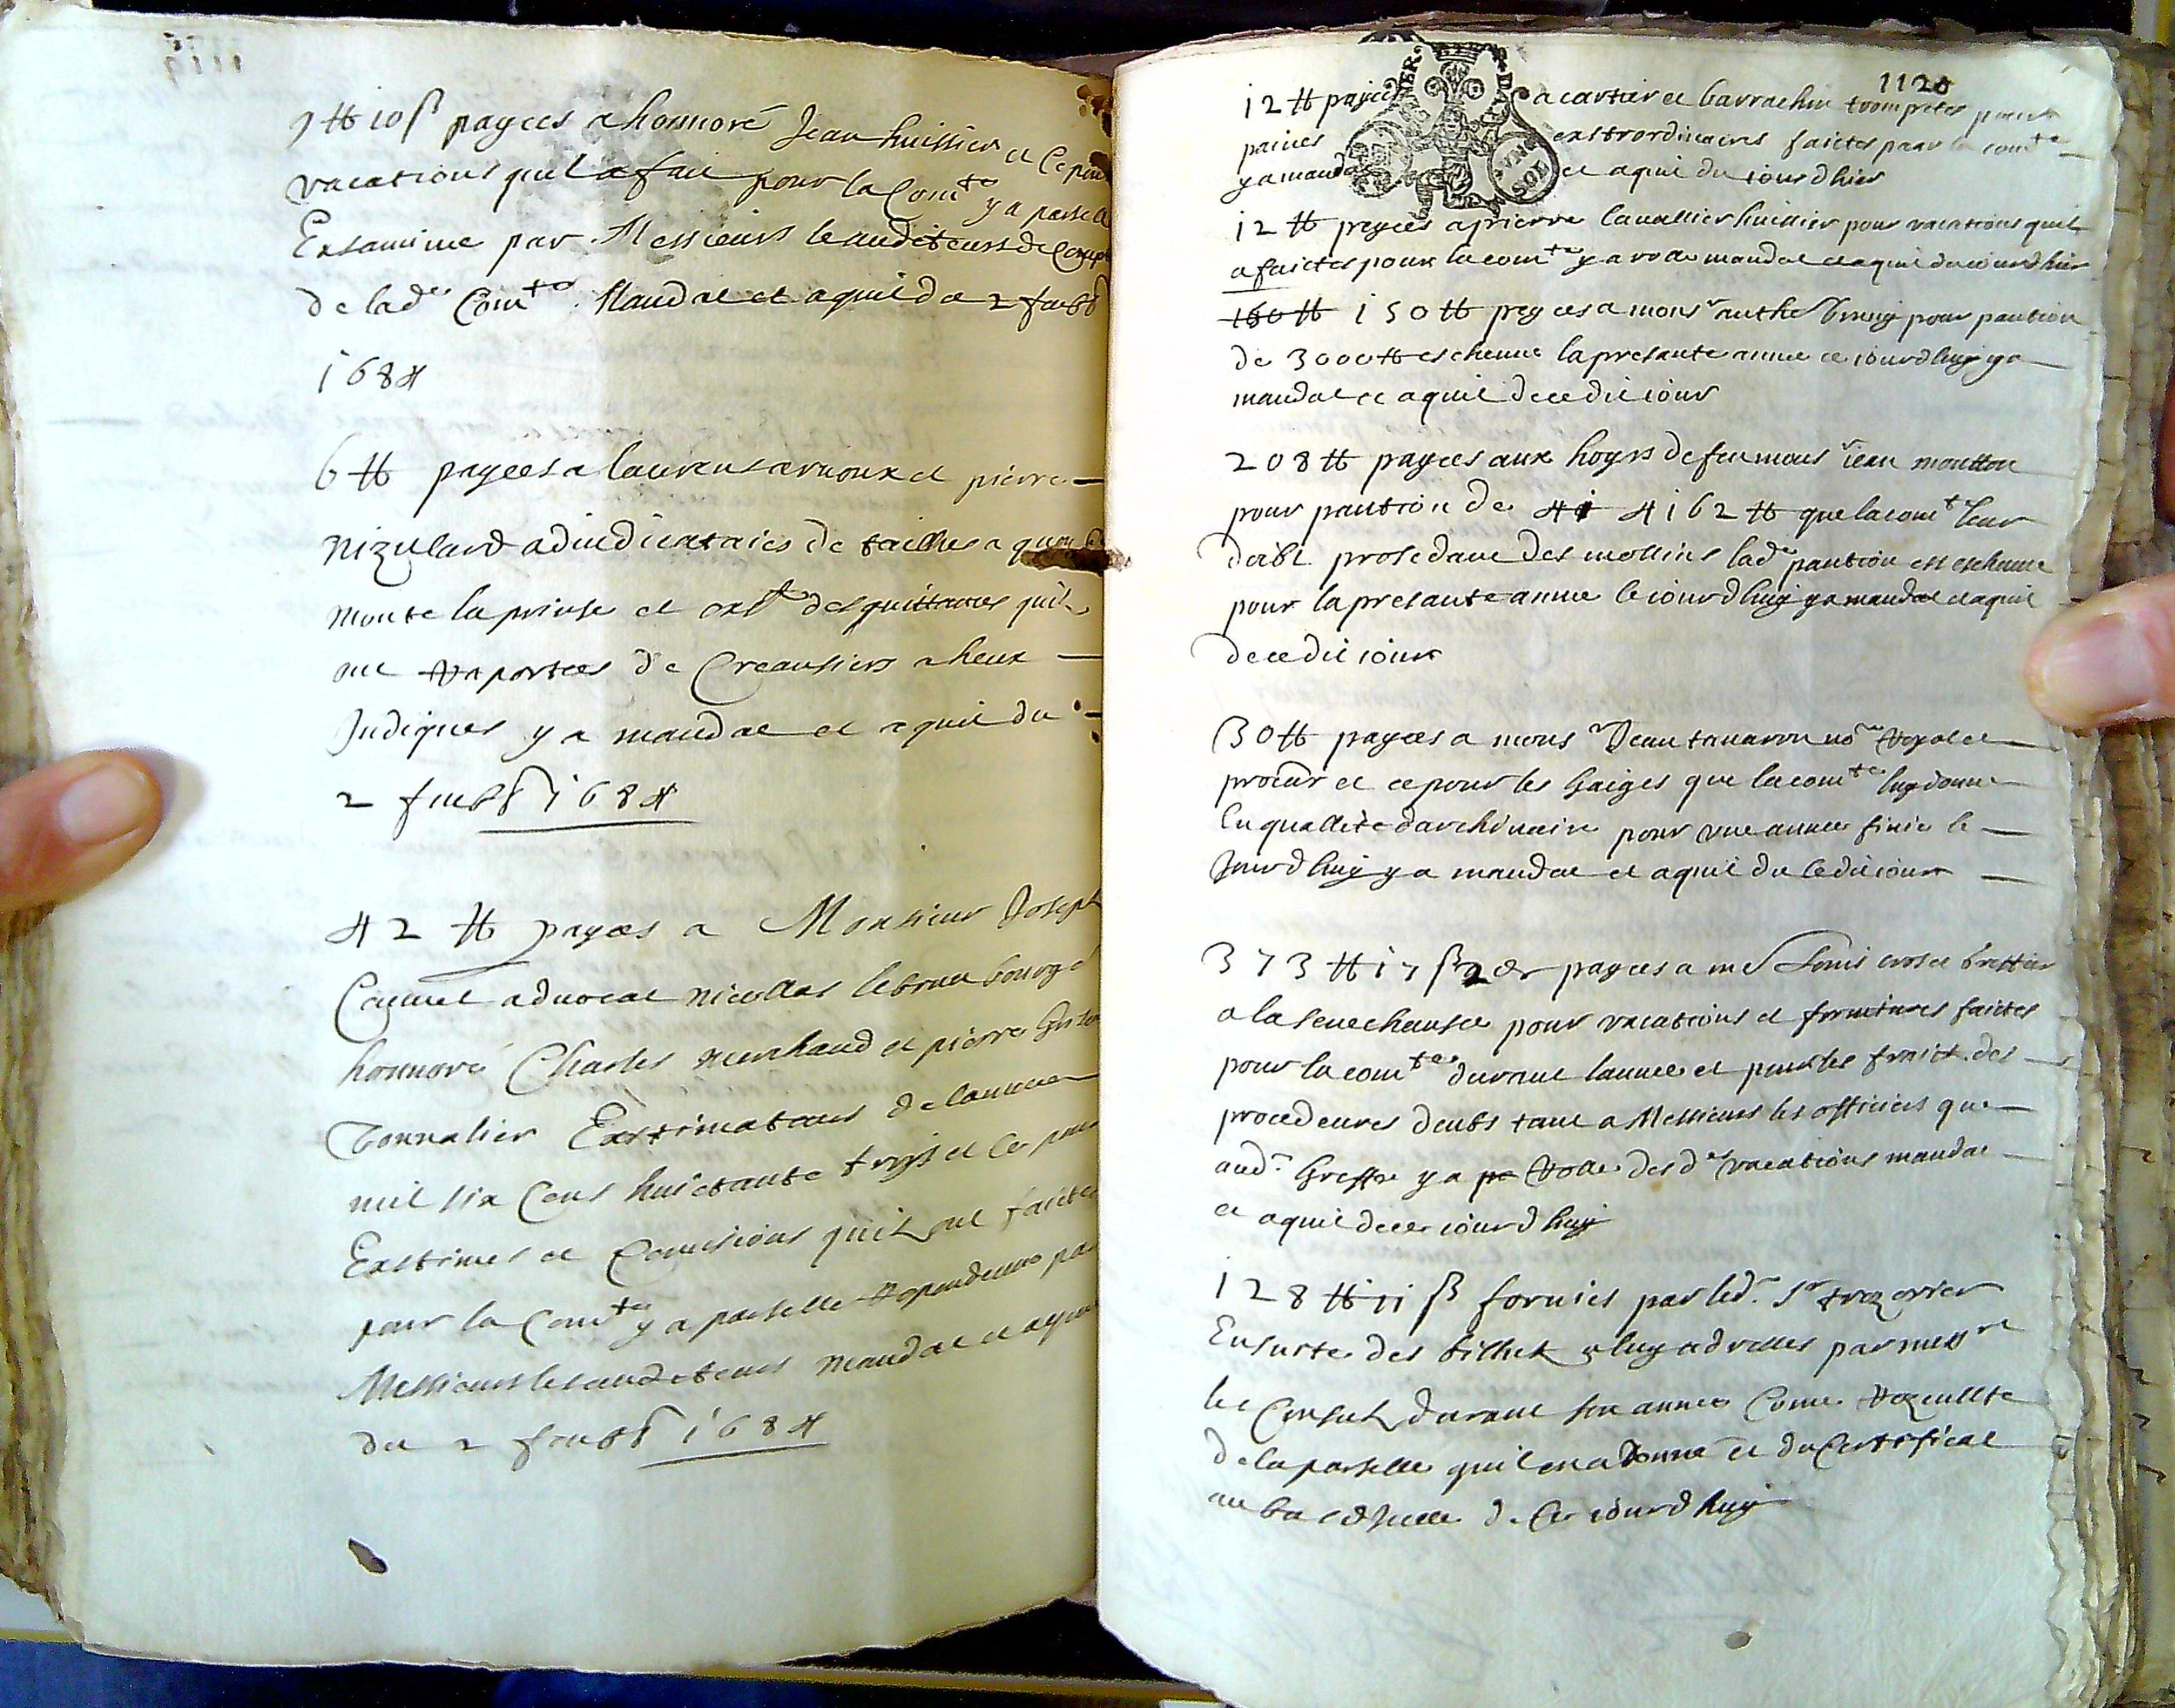 7 ₶ 10 ß payees a honnoré Jean huissier et ce pour
vacations quil a fait pour la Com.te y a parselle
Exsamine par Messieurs le auditeurs de Compte
de lad.e Com.te Mandat et aquit du 2 feubr
1684
6 ₶ payees a laurens arnoux et pierre
nizulard adiudicataies de tailles a quoy
monte la prinse et des quittances quils
ont raportees de Creansiers a heux
Indiques y a mandat et aquit du
2 feubr 1684
42 ₶ payees a Monsieur Joseph
advocat nicollas lebrun bourge
honnoré Charles marchand et pierre
Tonnalier Exstimateurs de lannee
mil six Cens huictante troys et ce pour
Exstimes et Comisions quils ont faictes
pour la Com.te y a parselle repondeue par
Messieurs les auditeurs mandat et aquit
du 2 feubr 1684
1120
12 ₶ payees a cartier et barrachin trompetes pour
paines exstrordinaires faictes pour la com.te
y a mandat et aquit du iourdhier
VNG SOL
12 ₶ payees a pierre Cauallier huissier pour vacations quil
a faictes pour la com.te y a role mandat et aquit du iourdhier
160 ₶ 150 ₶ payees a mons.r bruny pour pantion
de 3000 ₶ escheue la presante annee ce iourdhuy y a
mandat et aquit de cedit iour
208 ₶ payees aux hoyrs de feu mons.r iean moutton
pour pantion de 41 4162 ₶ que la com.t leur
doibt prosedant des mollins lad.e pantion est escheue
pour la presante annee ce iourdhuy y a mandat et aquit
de cedit iour
30 ₶ payees a mons.r Jean tauaron no.re Royal et
procur et ce pour les gaiges que la com.te luy donne
En quallite darchivaire pour vne annee finie le
Jourdhuy y a mandat et aquit du cedit iour
373 ₶ 17 ß 2 dr payees a me Louis crose greffier
a la senechausee pour vacations et fornitures faictes
pour la com.te durant lannee et pour les fraict des
procedeures deubs tant a Messieurs les officiers que
aud.t Greffe y a pa Rolle des d.es vacations mandat
et aquit de ce iourdhuy
128 ₶ 11 ß fornies par led.t Sr trezorier
En suite des billiet a luy adresses par mess.rs
les Consuls durant son annee Come Rezeullte
de la parselle quil en a donné et du Certificat
au bas dIcelle de Ce iourdhuy